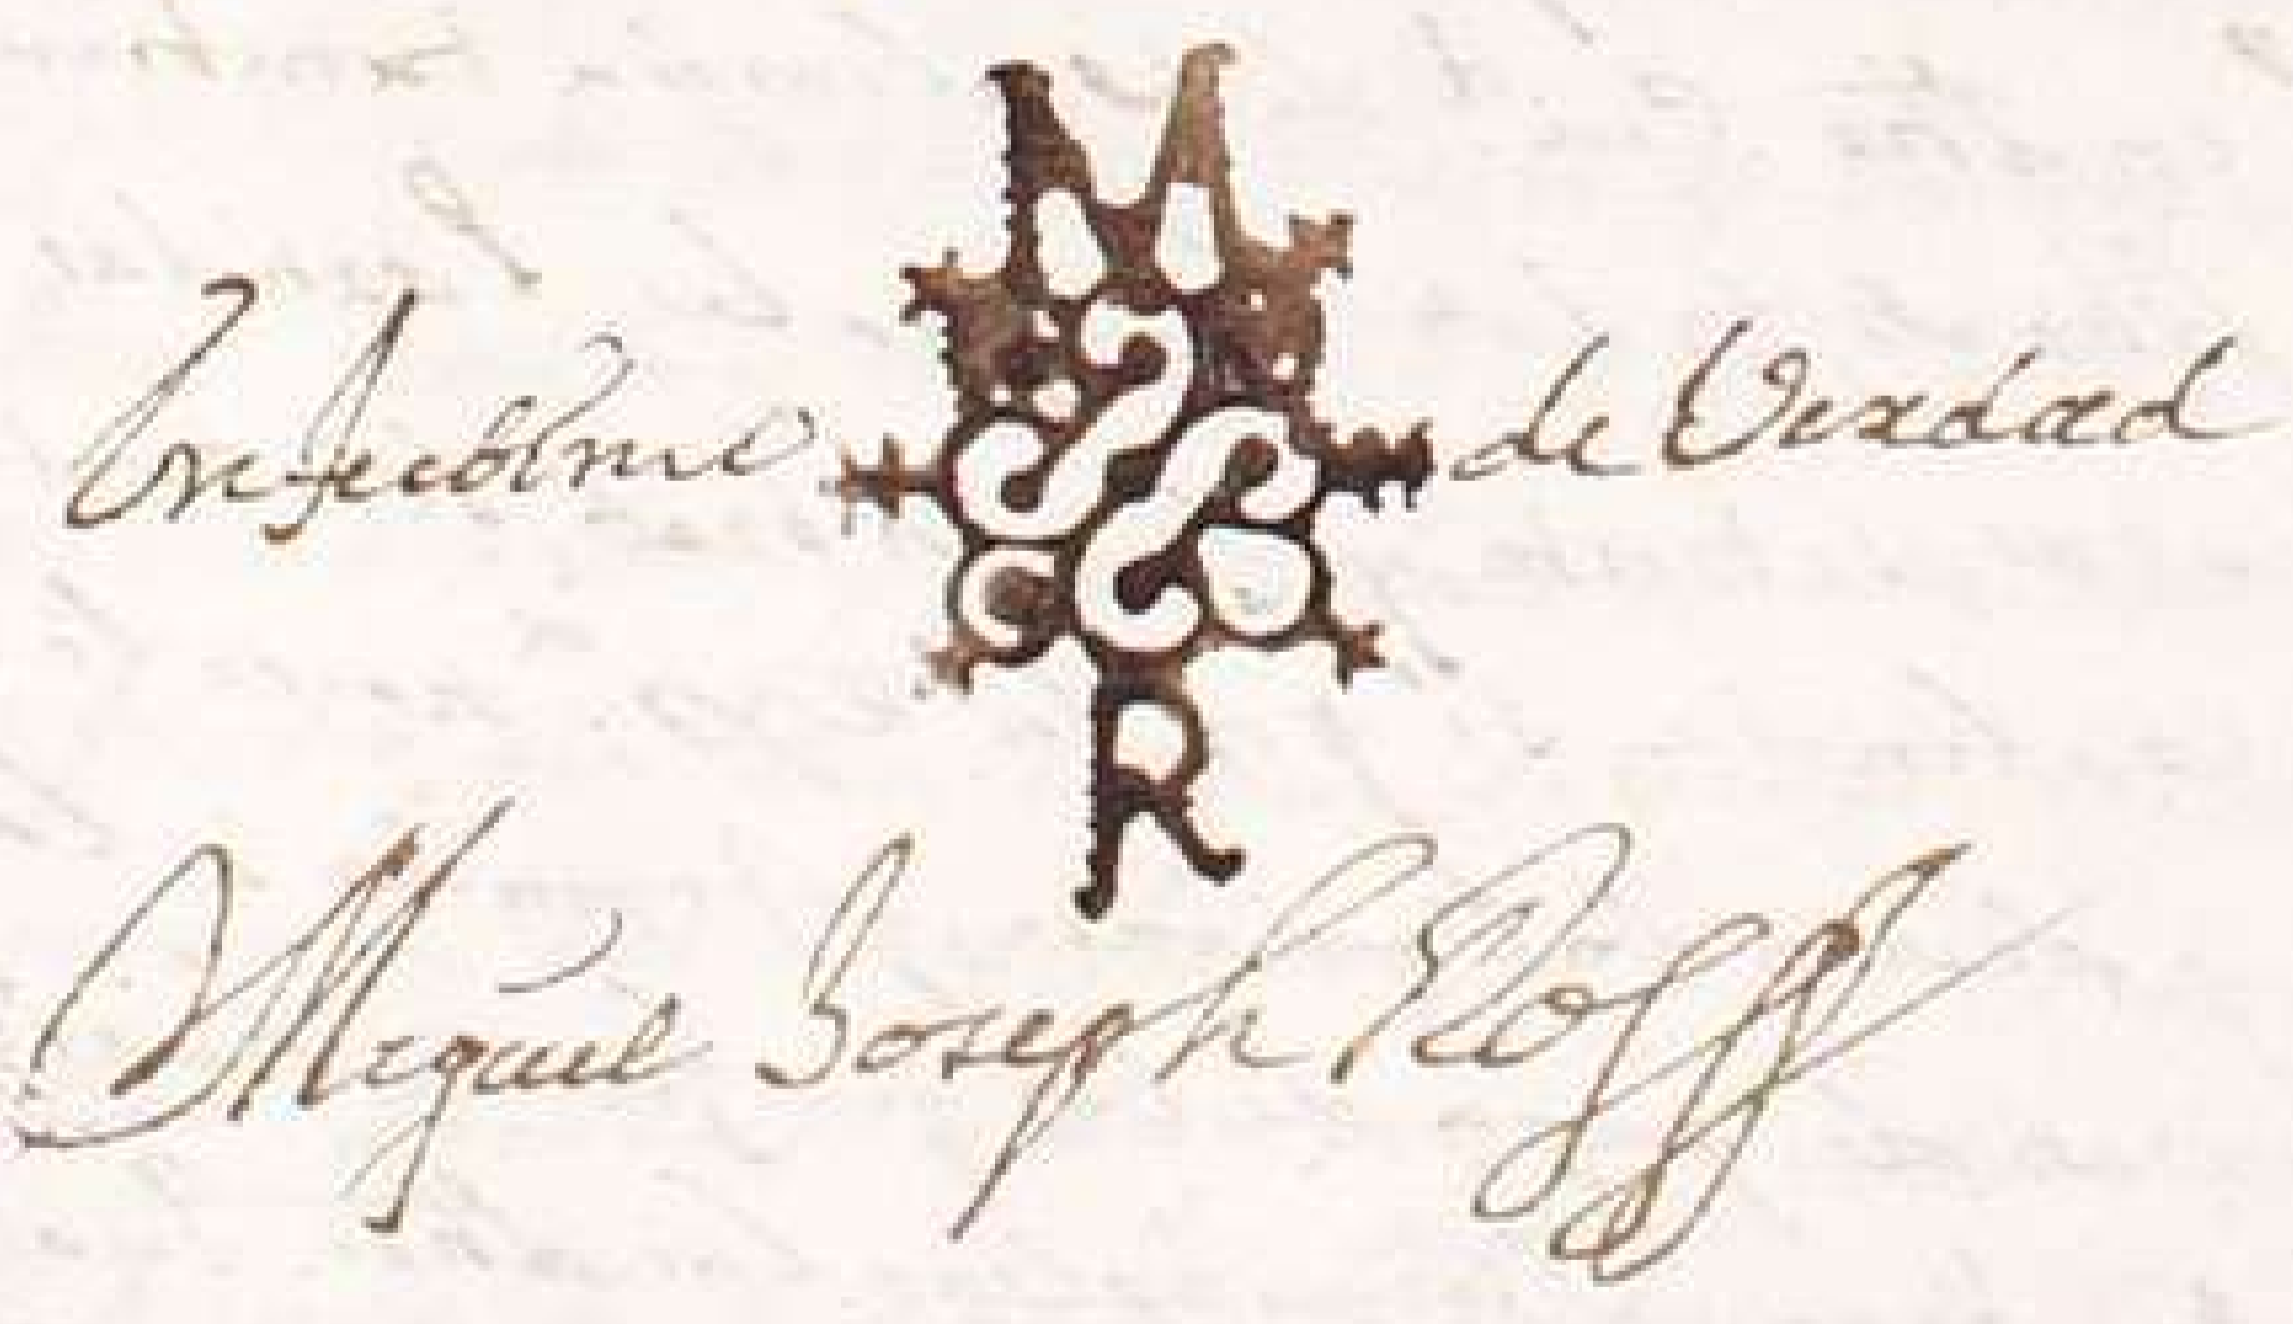 En testimo de Verdad
Miguel Joseph Roff